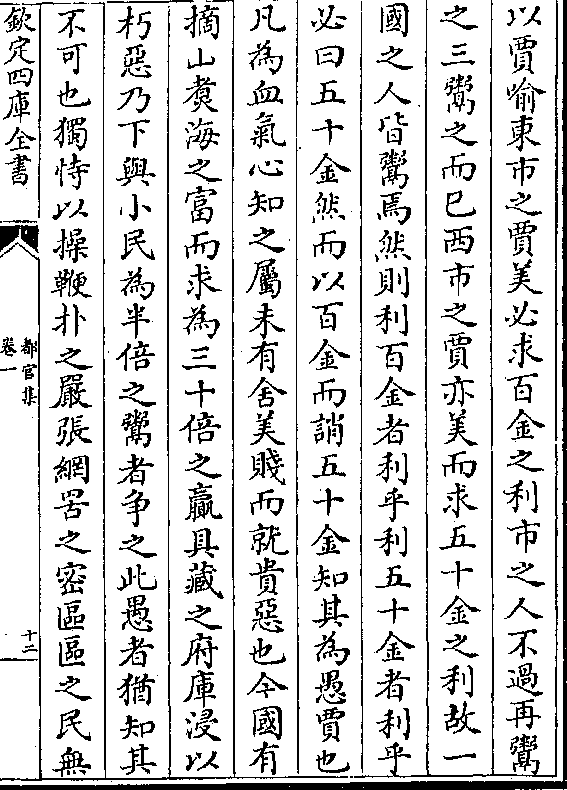 以賈喻東市之賈美必求百金之利市之人不過再鬻
之三鬻之而已西市之賈亦美而求五十金之利故一
國之人皆鬻焉然則利百金者利乎利五十金者利乎
必曰五十金然而以百金而誚五十金知其為愚賈也
凡為血氣心知之屬未有舍美賤而就貴惡也今國有
摘山煑海之富而求為三十倍之贏具藏之府庫浸以
朽惡乃下與小民為半倍之鬻者争之此愚者猶知其
不可也獨恃以操鞭扑之嚴張網罟之密區區之民無
欽定四庫全書
都官集
卷一
十二